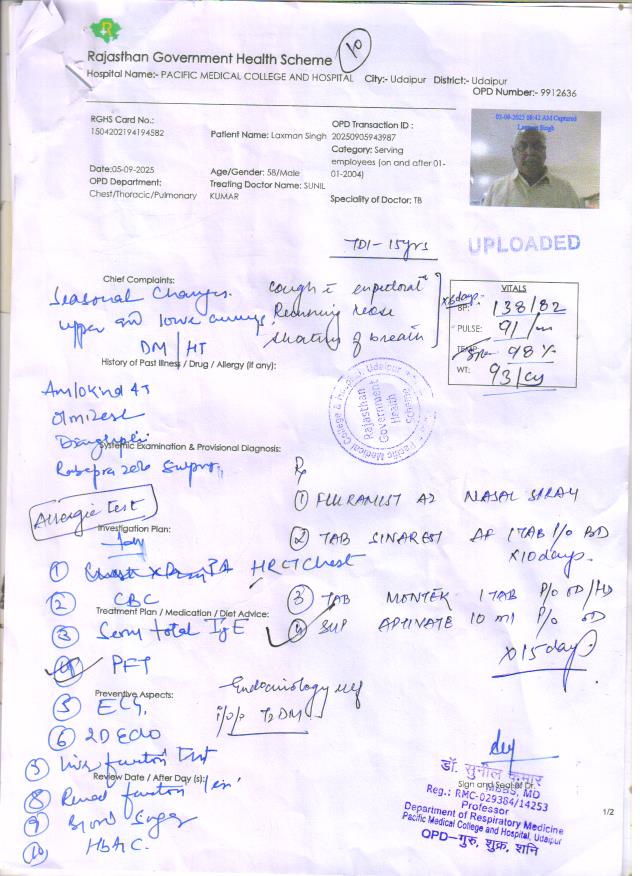 10
Rajasthan Government Health Scheme
Hospital Name:- PACIFIC MEDICAL COLLEGE AND HOSPITAL City:- Udaipur District:- Udaipur
OPD Number:- 9912636
RGHS Card No.:
1504202194194582
Patient Name: Laxman Singh
OPD Transaction ID :
20250905943987
Category: Serving
employees (on and after 01-
01-2004)
Date:05-09-2025
Age/Gender: 58/Male
OPD Department:
Chest/Thoracic/Pulmonary
Treating Doctor Name: SUNIL
KUMAR
Speciality of Doctor: TB
Laxman Singh
15yrs
UPLOADED
Chief Complaints:
Seasonal Changes.
upper and lower
DM/HT
cough
Running nose
shortness of breath
VITALS
BP: 138/82
PULSE: 91/m
98%
WT: 93/
History of Past Illness / Drug / Allergy (if any):
Amlokind AT
Olmizest
Systemic Examination & Provisional Diagnosis:
Pacific Medical College & Hospital, Udaipur
Rajasthan
Government
Health
Scheme
Allergic Test
Rx
① FLURAMIST AZ NASAL SPRAY
② TAB SINAREST AF 1TAB P/O BD
X10days.
③ TAB MONTEK 1TAB P/O OD/HS
④ SUP APTIVATE 10 ml P/O OD
X15days
Investigation Plan:
① PA HRCT Chest
② CBC
Treatment Plan / Medication / Diet Advice:
③ Serum total IgE
④ PFT
Preventive Aspects:
⑤ ECG.
⑥ 2D Echo
Endocrinology ref
i/v/o T2DM
Liver function Test
Review Date / After Day (s):
⑧ Renal function
⑨ Blood Sugar
⑩ HbA1C.
डॉ. सुनील कुमार
Sign and Seal of Dr.
MBBS, MD
Reg.: RMC-029384/14253
Professor
Department of Respiratory Medicine
Pacific Medical College and Hospital, Udaipur
OPD-गुरु, शुक्र, शनि
1/2